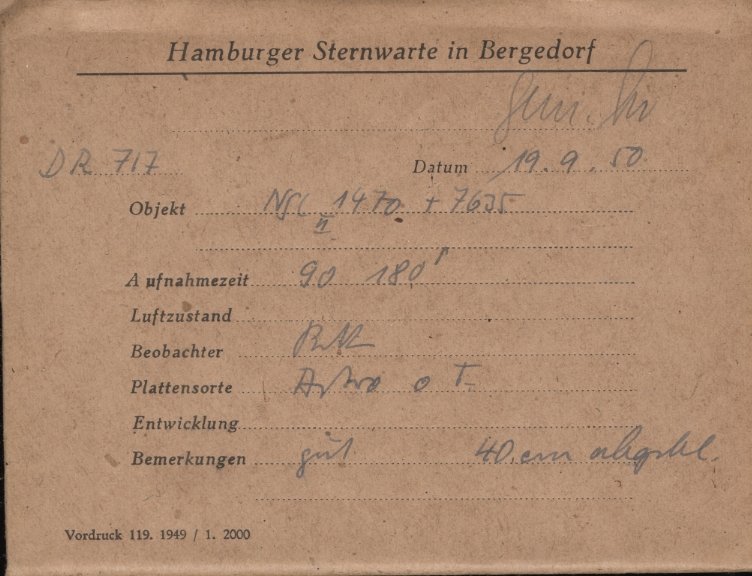 Hamburger Sternwarte in Bergedorf
DR 717 Datum 19.9.50
Objekt NGC 1470 + 7635
"
Aufnahmezeit 90 180'
Luftzustand
Beobachter
Plattensorte Astro
Entwicklung
Bemerkungen gut 40 cm abgebl.
Vordruck 119. 1949 / 1. 2000